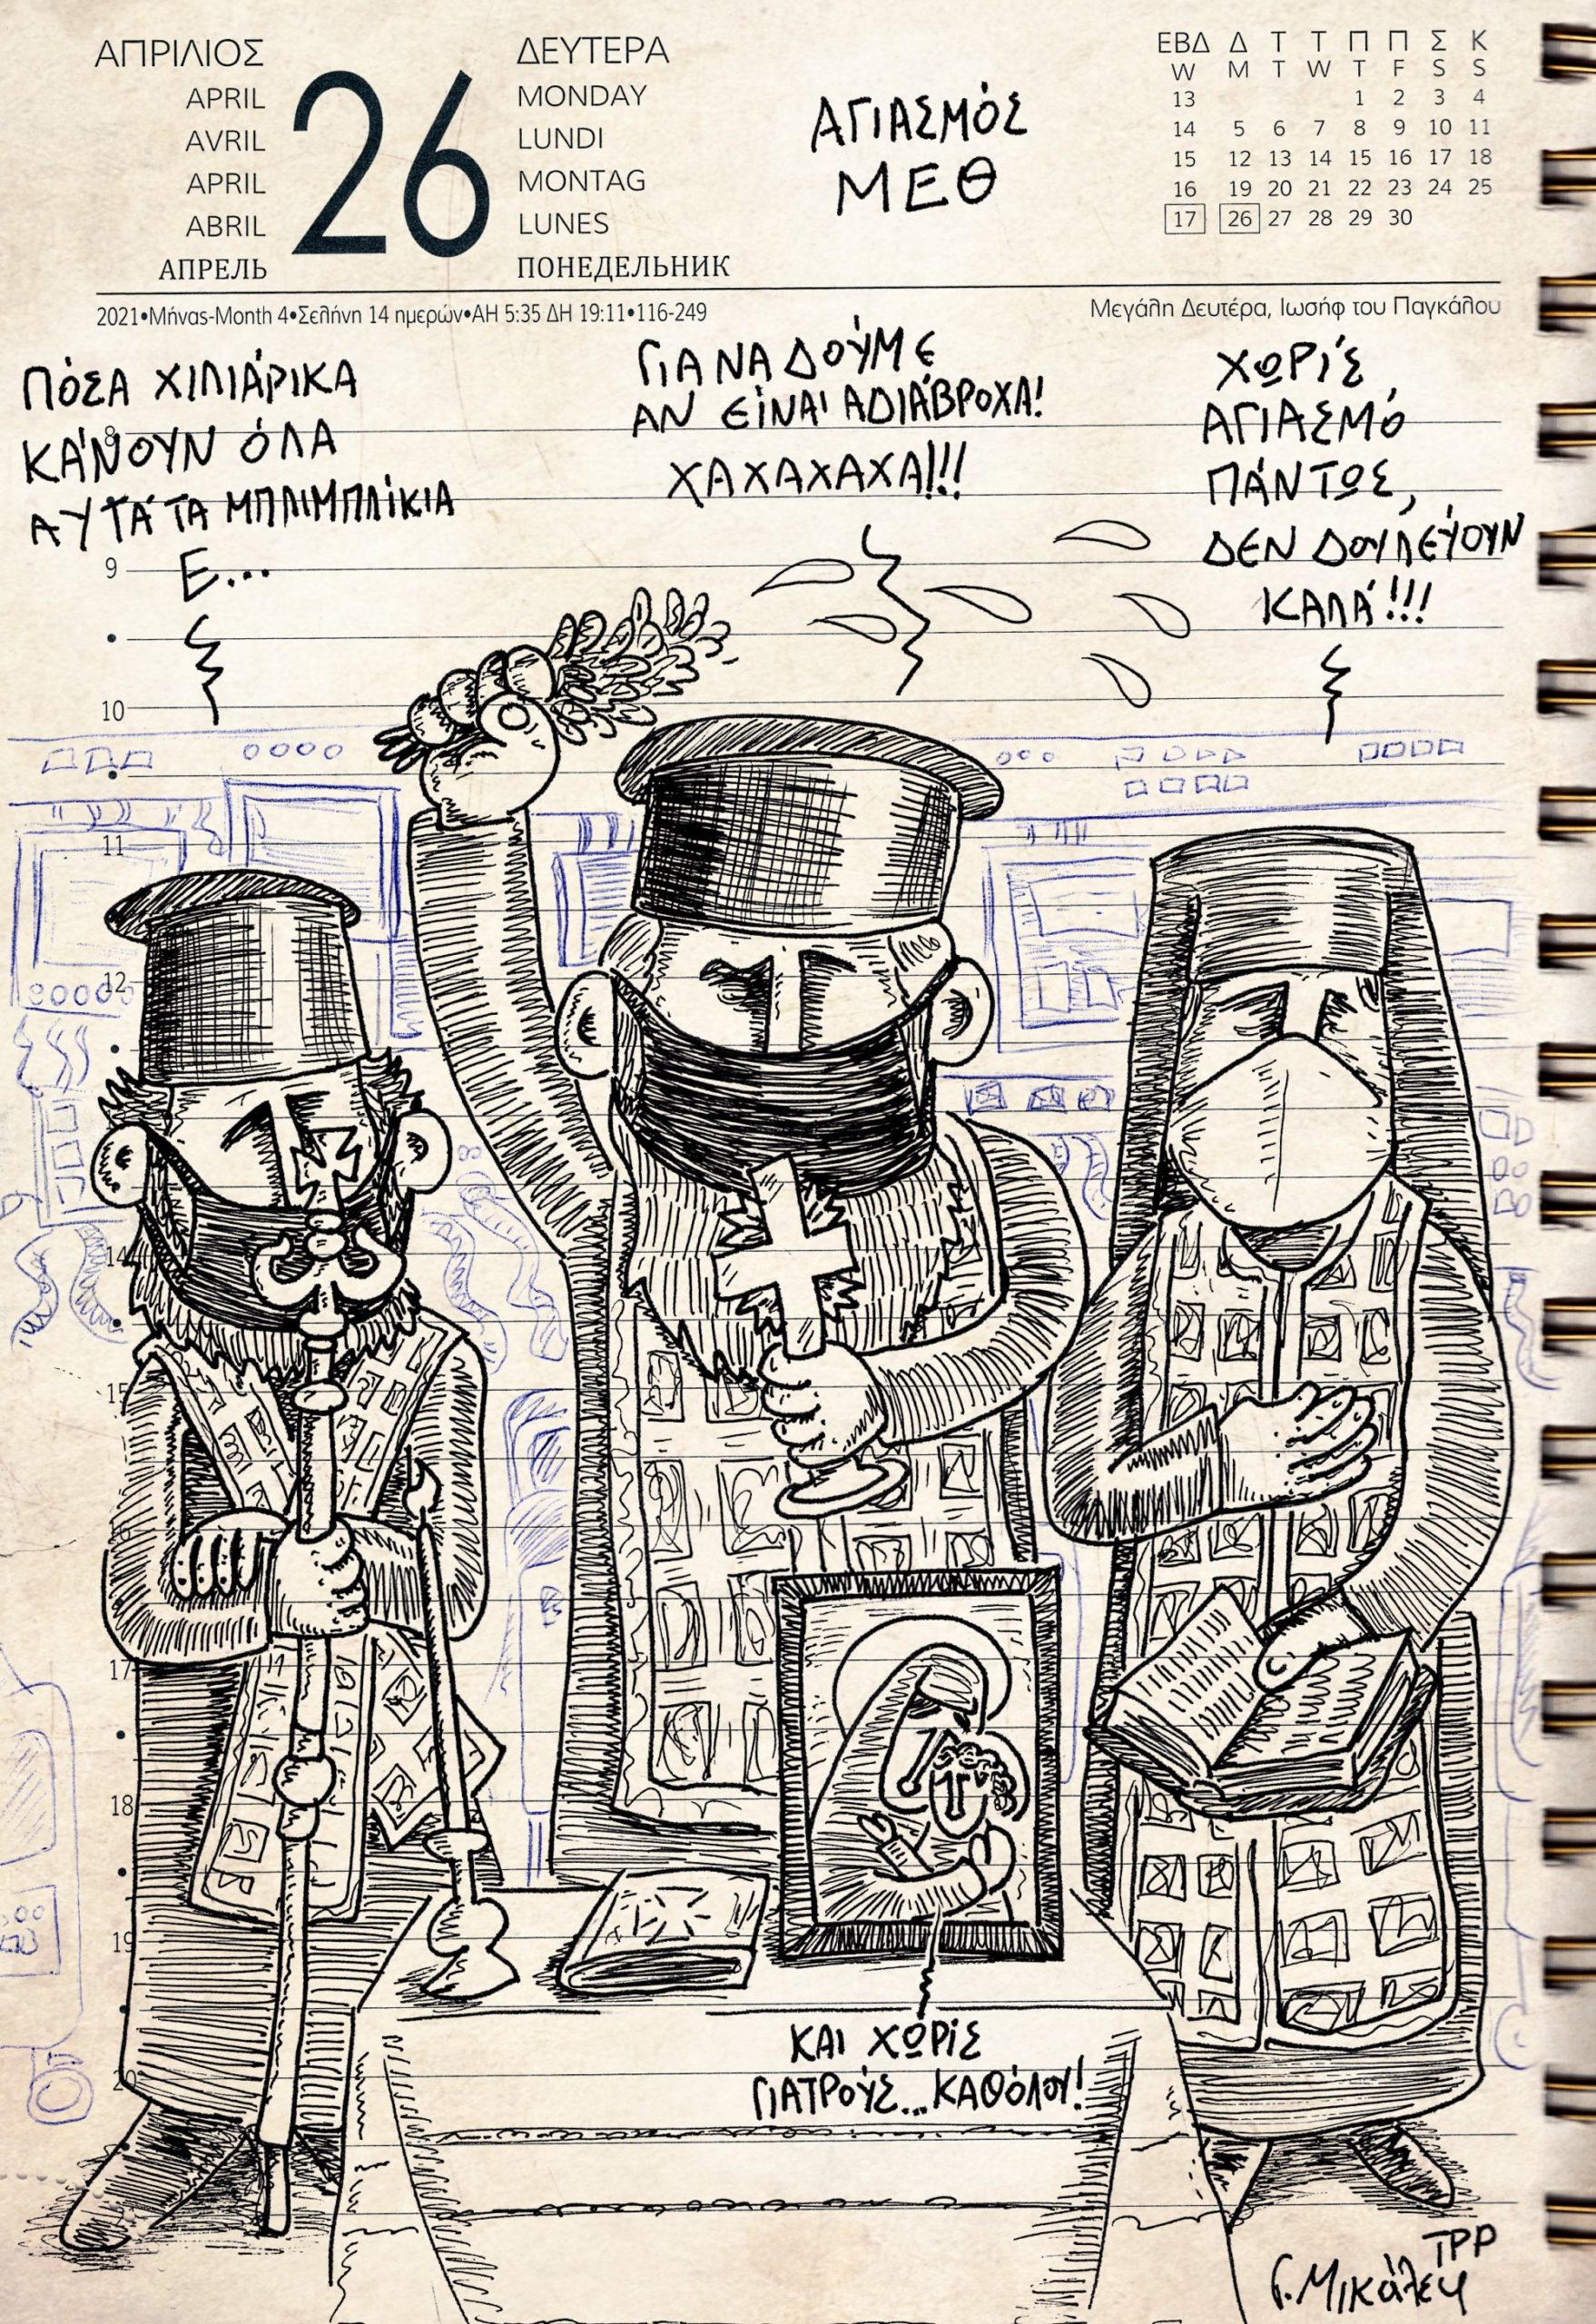 ΑΠΡΙΛΙΟΣ
APRIL
AVRIL
APRIL
ABRIL
АПРЕЛЬ
26
ΔΕΥΤΕΡΑ
MONDAY
LUNDI
MONTAG
LUNES
ПОНЕДЕЛЬНИК
ΑΓΙΑΣΜΌΣ
ΜΕΘ
ΕΒΔ Δ Τ Τ Π Π Σ Κ
W M T W T F S S
13 1 2 3 4
14 5 6 7 8 9 10 11
15 12 13 14 15 16 17 18
16 19 20 21 22 23 24 25
17 26 27 28 29 30
2021•Μήνας-Month 4•Σελήνη 14 ημερών•ΑΗ 5:35 ΔΗ 19:11•116-249
Μεγάλη Δευτέρα, Ιωσήφ του Παγκάλου
ΠΌΣΑ ΧΙΛΙΆΡΙΚΑ
ΚΆΝΟΥΝ ΌΛΑ
ΑΥΤΆ ΤΑ ΜΠΛΙΜΠΛΊΚΙΑ
Ε...
ΓΙΑ ΝΑ ΔΟΎΜΕ
ΑΝ ΕΊΝΑΙ ΑΔΙΆΒΡΟΧΑ!
ΧΑΧΑΧΑΧΑ!!!
ΧΩΡΊΣ
ΑΓΙΑΣΜΌ
ΠΆΝΤΩΣ,
ΔΕΝ ΔΟΥΛΕΎΟΥΝ
ΚΑΛΆ!!!
8
9
10
11
12
14
15
16
17
18
19
20
ΚΑΙ ΧΩΡΊΣ
ΓΙΑΤΡΟΎΣ...ΚΑΘΌΛΟΥ!
ΤΡΡ
Γ. Μικάλεφ